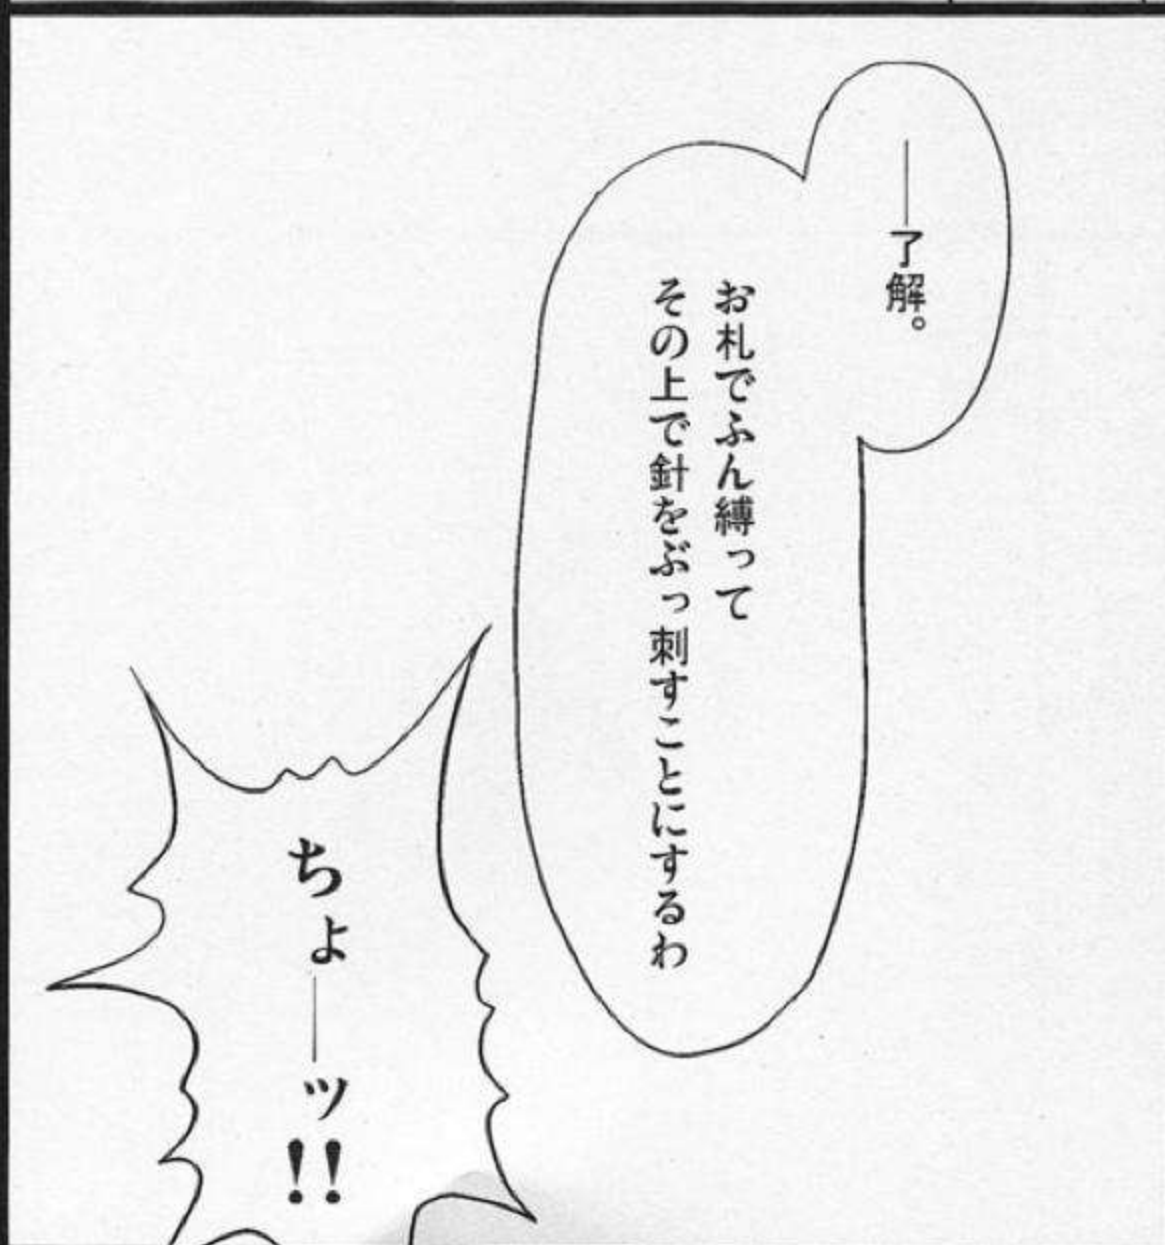 ――了解。
お札でふん縛って
その上で針をぶっ刺すことにするわ
ちょ――ッ!!